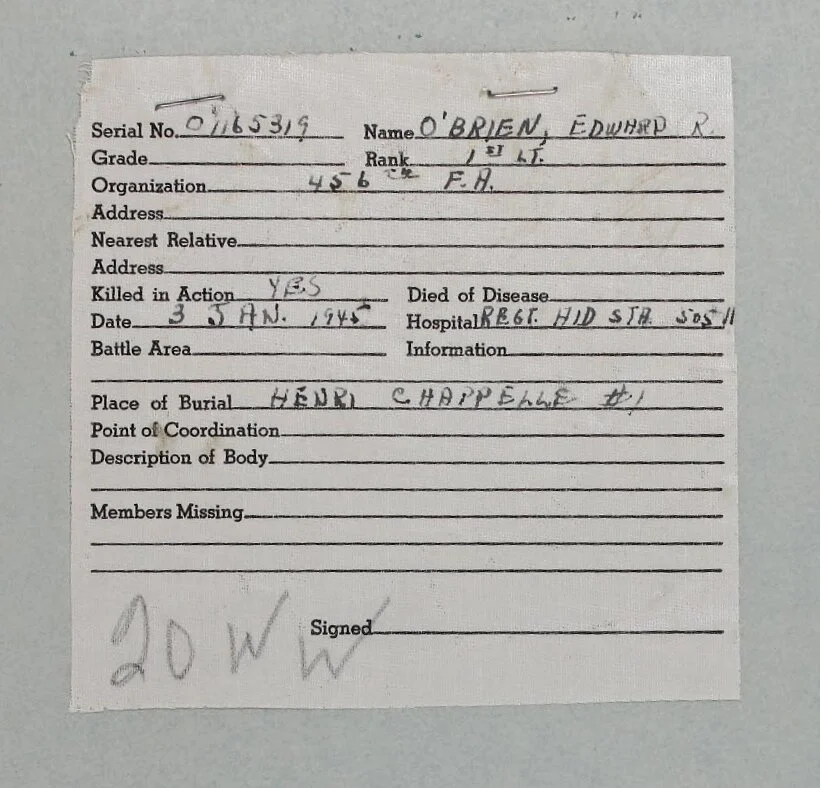 Serial No. O1165319 Name O'BRIEN, EDWARD R.
Grade Rank 1ST LT.
Organization 456TH F.A.
Address
Nearest Relative
Address
Killed in Action YES Died of Disease
Date 3 JAN. 1945 Hospital REGT. AID STA. 505
Battle Area Information
Place of Burial HENRI CHAPPELLE #1
Point of Coordination
Description of Body
Members Missing
Signed
20 W W